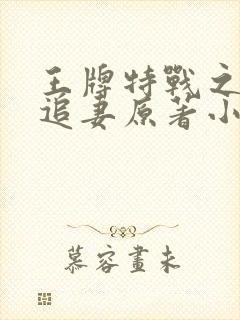 王牌特戰之
追妻原著小
慕容畫未